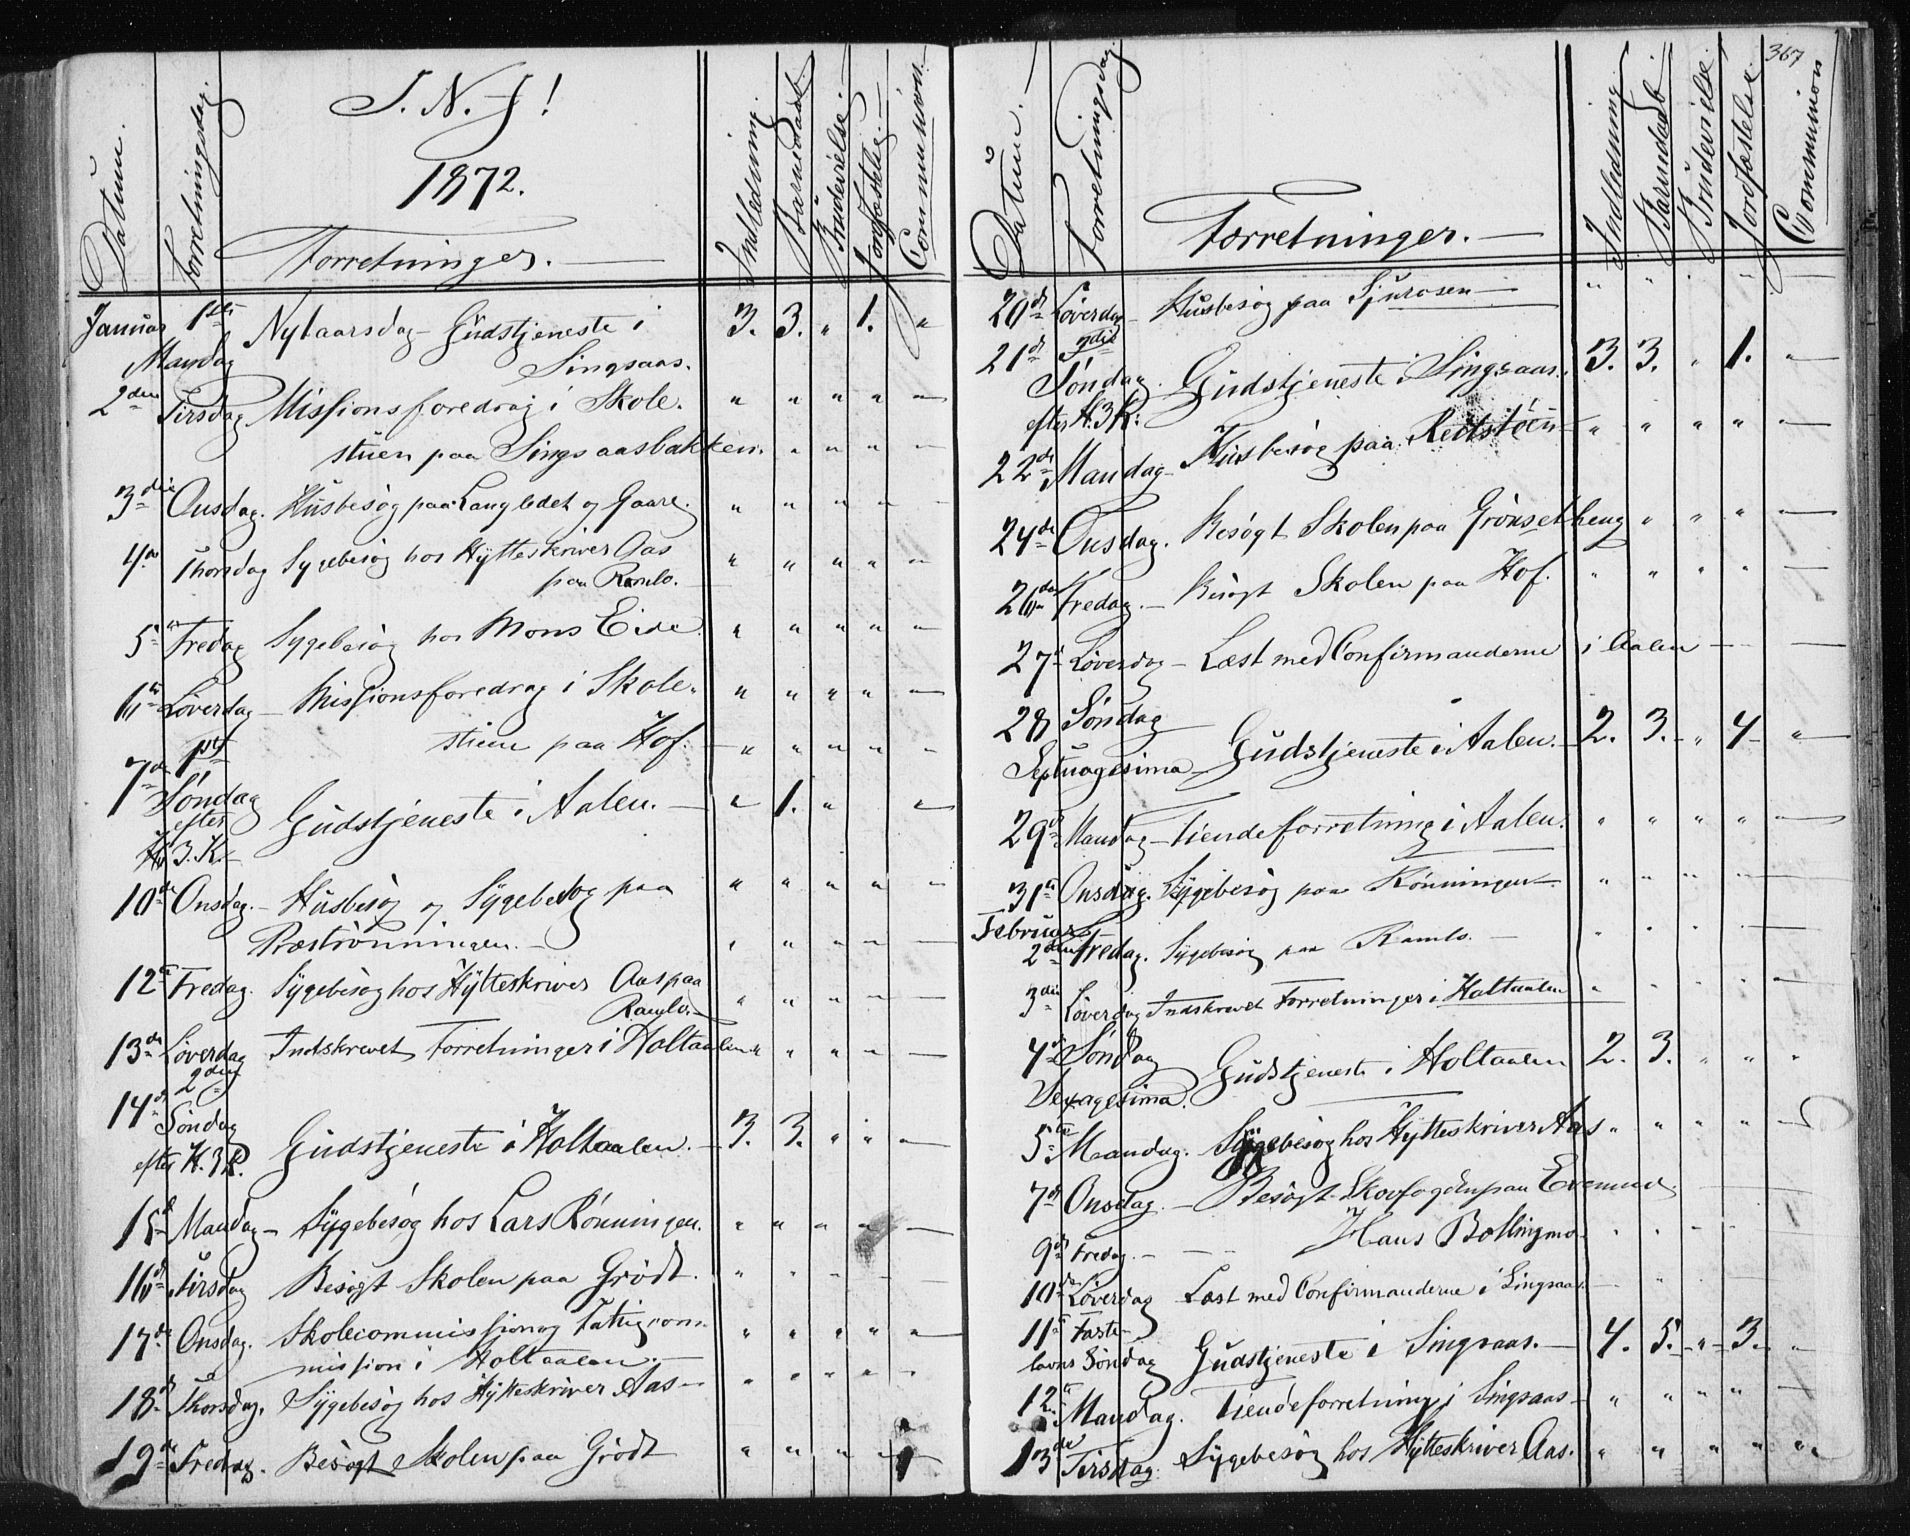 I. N. J!
1872.
Datum. Forretningsdag. Forretninger. Indledning Barnedaab Brudevielse Jordfæstelse Communion.
Januar 1ste Nytaarsdag – Gudstjeneste i 3. 3. " 1. "
Mandag Singsaas.
2den Tirsdag Missionsforedrag i Skole- " " " " "
stuen paa Singsaasbakken. " " " "
3die Onsdag. Husbesøg paa Langledet og Gaare. " " " " "
4de Thorsdag Sygebesøg hos Hytteskriver Aas " " " " "
paa Ramlo.
5te Fredag Sygebesøg hos Mons Eide " " " " "
6te Løverdag – Missionsforedrag i Skole- " " " " "
stuen paa Hof. " " " " "
7de 1ste
Søndag Gudstjeneste i Aalen. " 1. " "
efter
H. 3. K.
10de Onsdag. – Husbesøg og Sygebesøg paa " " " " "
Præstrønningen. " " " " "
12te Fredag. Sygebesøg hos Hytteskriver Aas paa
Ramlo. " " " " "
13de Løverdag Indskrevet Forretninger i Holtaalen " " " "
14de 2den
Søndag Gudstjeneste i Holtaalen. 3. 3. " " "
efter H. 3 K.
15de Mandag – Sygebesøg hos Lars Rønningen. " " " " "
16de Tirsdag Besøgt Skolen paa Grødt. " " " " "
17de Onsdag. Skolecommission og Fattigcom- " " " " "
mission i Holtaalen. " " " " "
18de Thorsdag. Sygebesøg hos Hytteskriver Aas –
19de Fredag. Besøgt Skolen paa Grødt " " " "
367
Datum. Forretningsdag Forretninger. Indledning Barnedaab Brudevielse Jordfæstelse Communion
20de Løverdag – Husbesøg paa Sjurosen " " " "
21de 3die
Søndag. Gudstjeneste i Singsaas. 3. 3. " 1. "
efter H. 3 K:
22de Mandag – Husbesøg paa " " " "
24de Onsdag. Besøgt Skolen paa Grønsetheug " " "
26de Fredag. – Besøgt Skolen paa Hof. " " " "
27de Løverdag – Læst med Confirmanderne i Aalen
28 Søndag
Septuagesima – Gudstjeneste i Aalen. – 2. 3. " 4 "
29de Mandag – Tiendeforretning i Aalen. " " " "
31te Onsdag. Sygebesøg paa Rønningen " " " "
Februar
2den Fredag. Sygebesøg paa Ramlo.
3die Løverdag Indskrevet Forretninger i Holtaalen "
4de Søndag Gudstjeneste i Holtaalen 2. 3. " " "
Sexagesima.
5te Mandag. Sygebesøg hos Hytteskriver Aas " " " "
7de Onsdag. – Besøgt Skovfogden paa Evenmo
9de Fredag. – – Hans Bollingmo
10de Løverdag Læst med Confirmanderne i Singsaas.
11te Faste-
lavns Søndag Gudstjeneste i Singsaas. – 4. 5. " 3. "
12te Mandag. Tiendeforretning i Singsaas – " " " "
13de Tirsdag. Sygebesøg hos Hytteskriver Aas. " " " " "